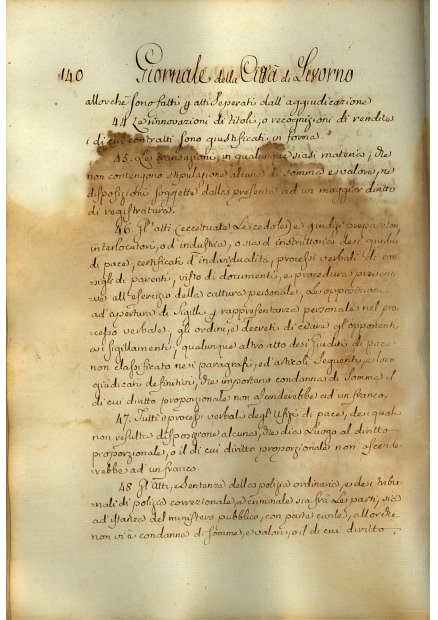 140 Giornale della Città di Livorno
allorche sono fatti p atti seperati dall'aggiudicazione
44. Le rinnovazioni di titoli, o recognizioni di rendite
i di cui contratti sono giustificati in forma
45. Le transazioni in qualunque siasi materia, che
non contengono stipulazione alcuna di somma e valore, ne
disposizioni soggette dalla presente ad un maggior diritto
di registratura.
46. Gl'atti (eccettuate Le cedole) e giudizj preparatorj
interlocutori, o d'industria, o sia d'instruttoria de i giudici
di pace, certificati d'individualità, processi verbali di con
sigli di parenti, visto di documenti, e procedura preventi
va all'esercizio della cattura personale, Le opposizioni
ad apertura di Sigilli p rappresentanza personale nel pro
cesso verbale, gl'ordini, e decreti di citare gl'opponenti
ai sigillamenti, qualunque altro atto de i Giudici di pace
non classificato ne i paragrafi, ed articoli Seguenti, e loro
giudicati definitivi, che importano condanna di Somma il
di cui diritto proporzionale non ascenderebbe ad un franco.
47. Tutti i processi verbali degl'Ufizi di pace, de i quali
non resulta disposizione alcuna, che dia Luogo al diritto
proporzionale, o il di cui diritto proporzionale non ascende
rebbe ad un franco
48. Gl'Atti, e Sentenze della polizia ordinaria, e de i tribu
nali di polizia correzionale, e criminale sia frà Le parti, sia
ad istanza del ministero pubblico, con parte civile, allorche
non vi è condanna di somme, e valori, o il di cui diritto